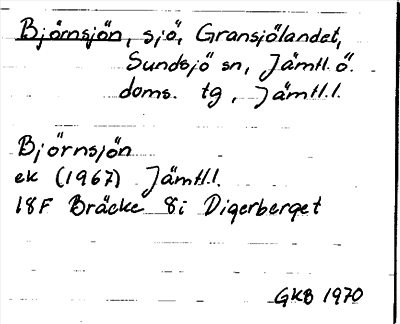 Björnsjön, sjö, Gransjölandet,
Sundsjö sn, Jämtl. ö.
doms. tg, Jämtl. l.
Björnsjön
ek (1967) Jämtl. l.
18F Bräcke 8i Digerberget
GKB 1970